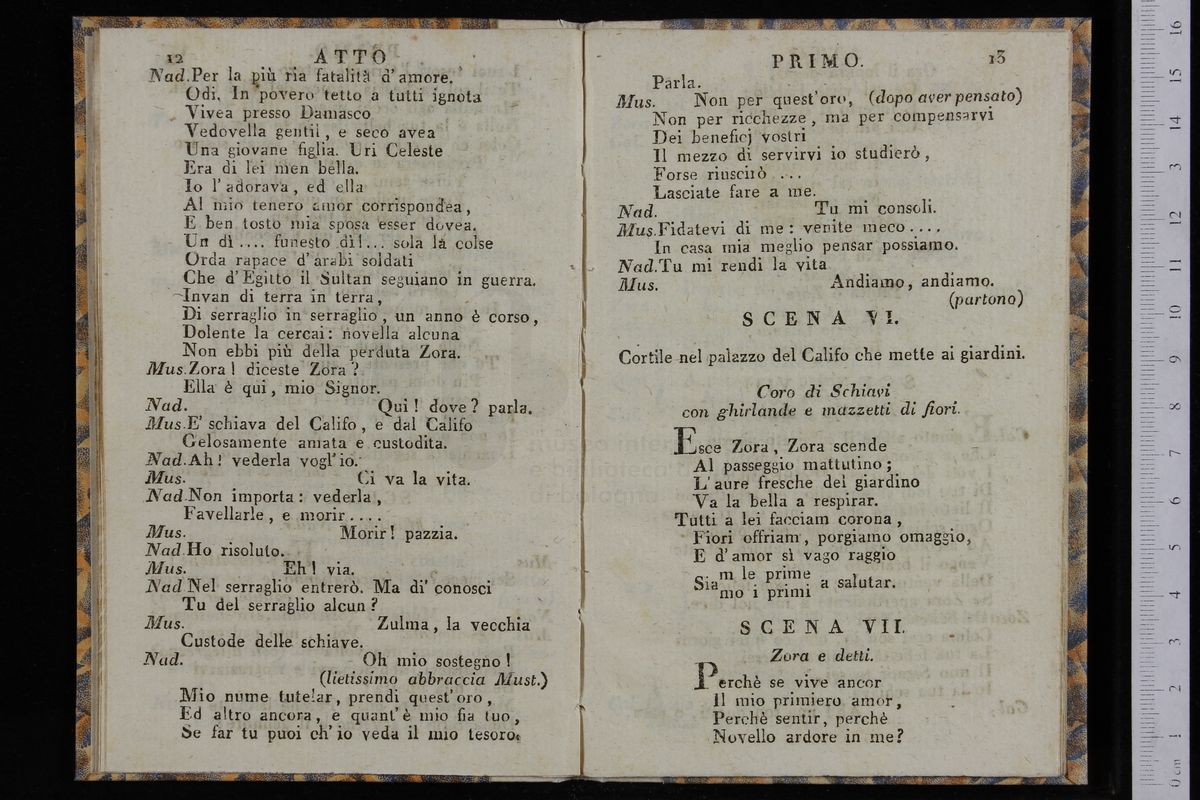 12 ATTO
Nad. Per la più ria fatalità d'amore.
Odi. In povero tetto a tutti ignota
Vivea presso Damasco
Vedovella gentil, e seco avea
Una giovane figlia. Uri Celeste
Era di lei men bella.
Io l'adorava, ed ella
Al mio tenero amor corrispondea,
E ben tosto mia sposa esser dovea.
Un dì .... funesto dì!... sola la colse
Orda rapace d'arabi soldati
Che d'Egitto il Sultan seguiano in guerra.
Invan di terra in terra,
Di serraglio in serraglio, un anno è corso,
Dolente la cercai: novella alcuna
Non ebbi più della perduta Zora.
Mus. Zora! diceste Zora?
Ella è qui, mio Signor.
Nad. Qui! dove? parla.
Mus. E' schiava del Califo, e dal Califo
Gelosamente amata e custodita.
Nad. Ah! vederla vogl'io.
Mus. Ci va la vita.
Nad. Non importa: vederla,
Favellarle, e morir....
Mus. Morir! pazzia.
Nad. Ho risoluto.
Mus. Eh! via.
Nad Nel serraglio entrerò. Ma di' conosci
Tu del serraglio alcun?
Mus. Zulma, la vecchia
Custode delle schiave.
Nad. Oh mio sostegno!
(lietissimo abbraccia Must.)
Mio nume tutelar, prendi quest'oro,
Ed altro ancora, e quant'è mio fia tuo,
Se far tu puoi ch'io veda il mio tesoro.
PRIMO. 13
Parla.
Mus. Non per quest'oro, (dopo aver pensato)
Non per ricchezze, ma per compensarvi
Dei beneficj vostri
Il mezzo di servirvi io studierò,
Forse riuscirò ...
Lasciate fare a me.
Nad. Tu mi consoli.
Mus. Fidatevi di me: venite meco....
In casa mia meglio pensar possiamo.
Nad. Tu mi rendi la vita
Mus. Andiamo, andiamo.
(partono)
SCENA VI.
Cortile nel palazzo del Califo che mette ai giardini.
Coro di Schiavi
con ghirlande e mazzetti di fiori.
Esce Zora, Zora scende
Al passeggio mattutino;
L'aure fresche del giardino
Va la bella a respirar.
Tutti a lei facciam corona,
Fiori offriam, porgiamo omaggio,
E d'amor sì vago raggio
Siam le prime
Siamo i primi a salutar.
SCENA VII.
Zora e detti.
Perchè se vive ancor
Il mio primiero amor,
Perchè sentir, perchè
Novello ardore in me?